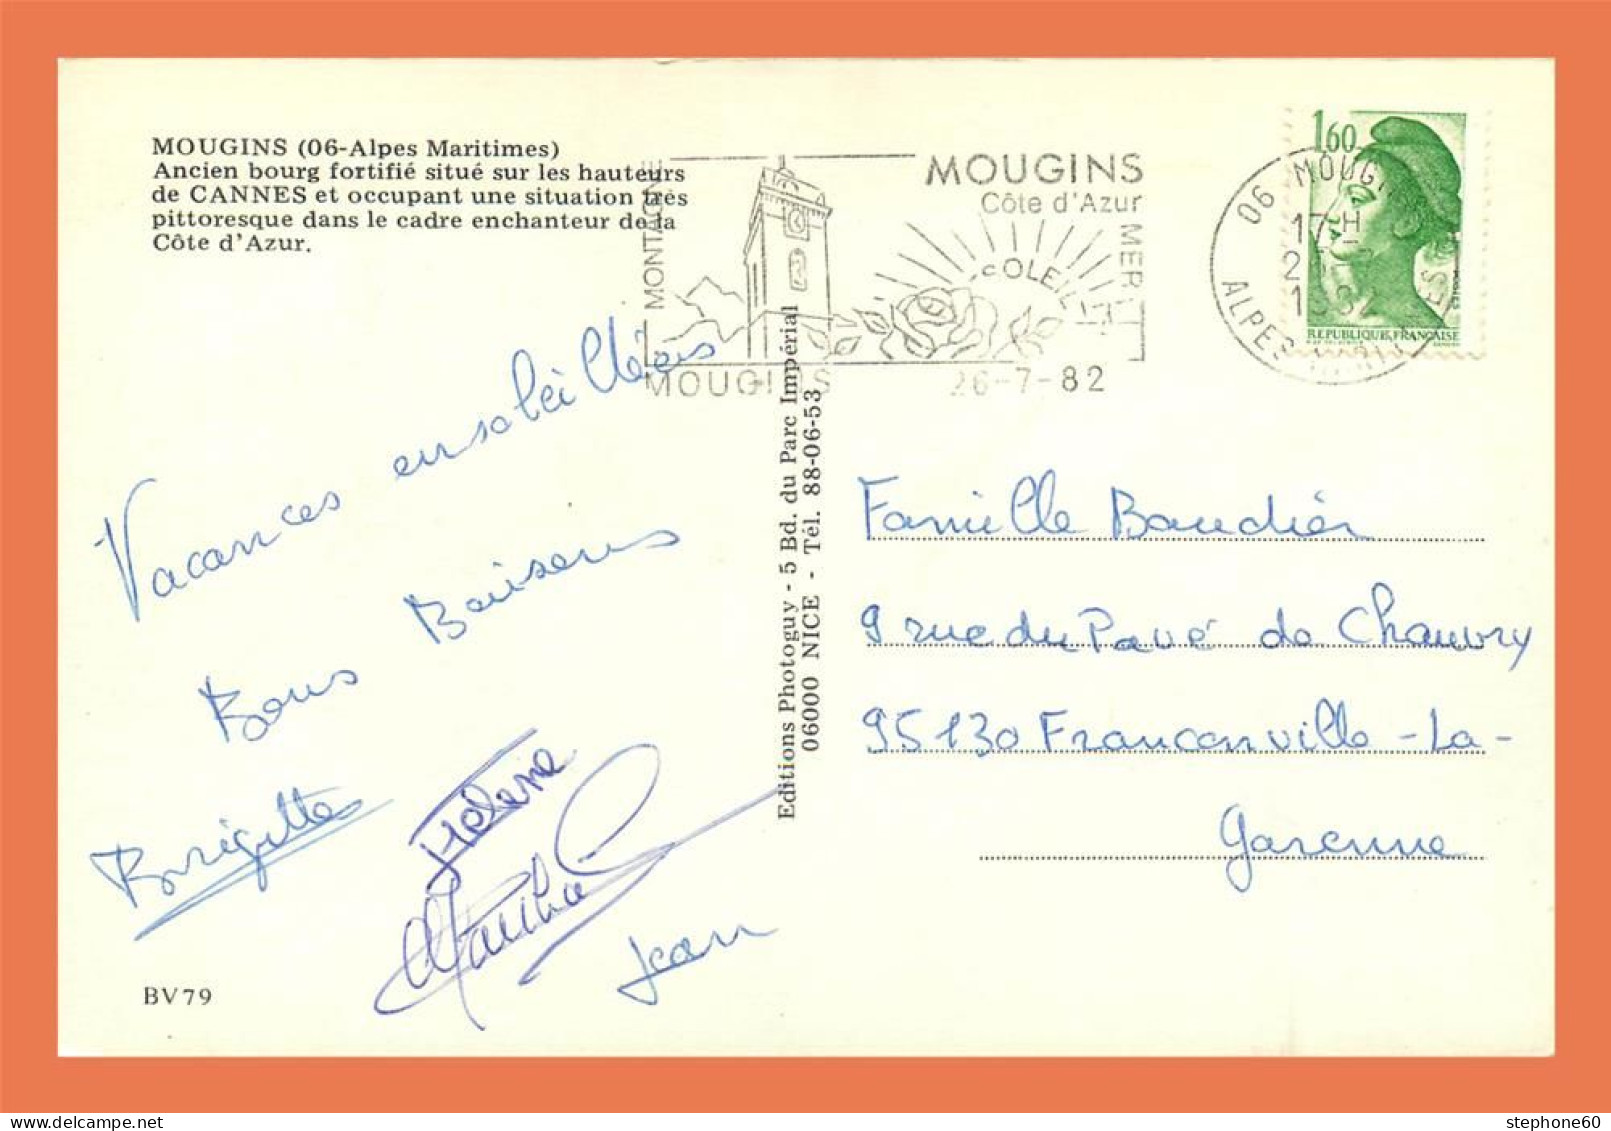 MOUGINS (06-Alpes Maritimes)
Ancien bourg fortifié situé sur les hauteurs
de CANNES et occupant une situation très
pittoresque dans le cadre enchanteur de la
Côte d'Azur.
MONTAGNE
MOUGINS
Côte d'Azur
MER
SOLEIL ET
MOUGINS 26-7-82
1,60
REPUBLIQUE FRANCAISE
06 MOUGINS
17H
1982
ALPES MARITIMES
Vacances ensoleillées
Bons Baisers
Brigitte
Hélène
Jean
Editions Photoguy - 5 Bd. du Parc Impérial
06000 NICE - Tél. 88-06-53
Famille Baudier
9 rue du Pavé de Chauvry
95130 Franconville-La-
Garenne
BV79
stephone60